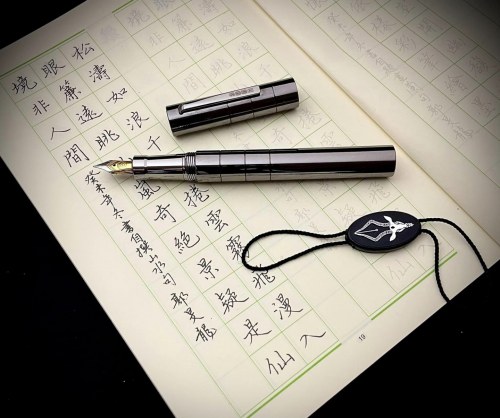 松濤如浪千捲雲霧漫入
眼簾遠眺嵐奇絕景疑是仙
境非人間
癸未年冬書自撰山水句郭龍
19